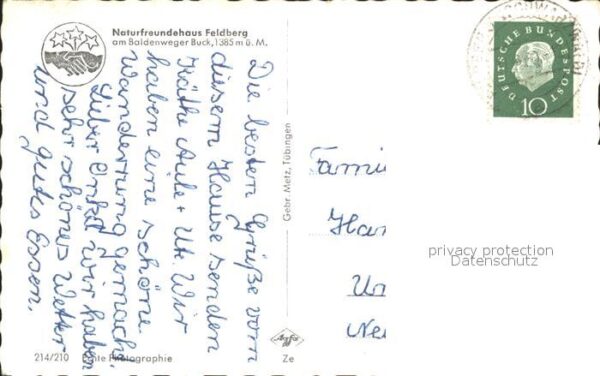 Naturfreundehaus Feldberg
am Baldenweger Buck, 1385 m ü. M.
Die besten Grüße vom
diesem Hause senden
Käthe Aule + Ute Wir
haben eine schöne
Wanderrung gemacht.
Lieber Onkel wir haben
sehr schönes Wetter
und gutes Essen.
Gebr. Metz, Tübingen
Agfa
214/210 Echte Photographie
Ze
DEUTSCHE BUNDESPOST
10
Famili
Han
Un
Ne
privacy protection
Datenschutz